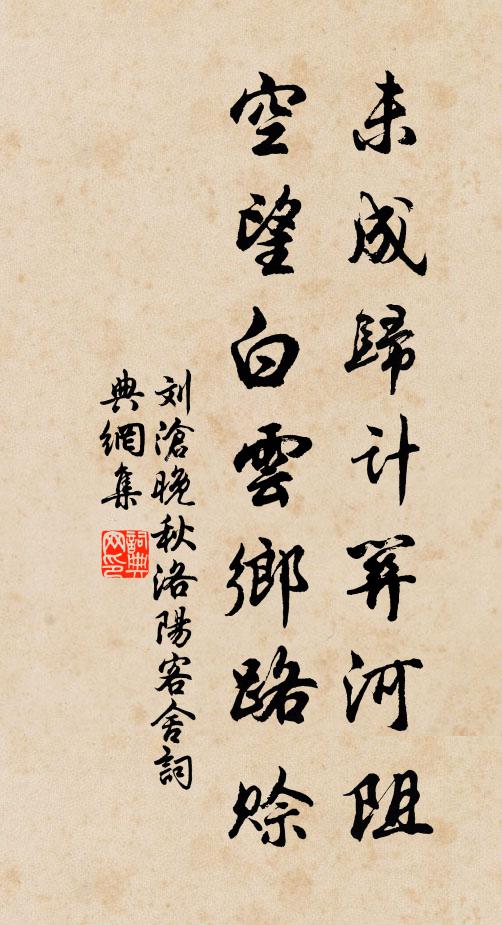 未成歸計關河阻
空望白雲鄉路賒
刘滄晚秋洛陽客舍詞
典網集
詞典网印